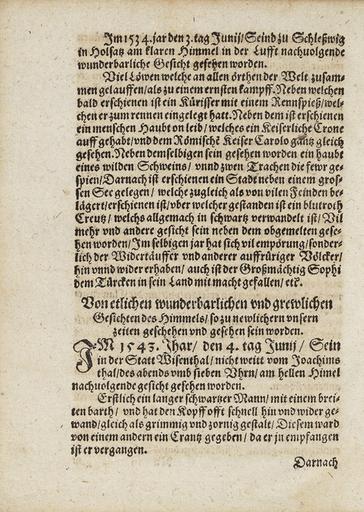 Im 1534. jar den 3. tag Junij/ Seind zu Schleßwig
in Holsatz am klaren Himmel in der Lufft nachuolgende
wunderbarliche Gesicht gesehen worden.
Viel Löwen welche an allen örthen der Welt zusam-
men gelauffen/ als zu einem ernsten kampff. Neben welchen
bald erschienen ist ein Kürisser mit einem Rennspieß/ wel-
chen er zum rennen eingelegt hatt. Neben dem ist erschienen
ein menschen Haubt on leib/ welches ein Keiserliche Crone
auff gehabt/ vnd dem Römische Keiser Carolo gantz gleich
gesehen. Neben demselbigen sein gesehen worden ein haubt
eines wilden Schweins/ vnnd zwen Trachen die fewr ge-
spien/ Darnach ist erschienen ein Stadt neben einem gros-
sen See gelegen/ welche zugleich als von vilen Feinden be-
lägert/ erschienen ist/ vber welcher gestanden ist ein blutroth
Creutz/ welchs allgemach in schwartz verwandelt ist/ Vil
mehr vnd andere gesicht sein neben dem obgemelten gese-
hen worden/ Im selbigen jar hat sich vil empörung/ sonder-
lich der Widertäuffer vnd anderer auffrüriger Völcker/
hin vnnd wider erhaben/ auch ist der Großmächtig Sophi
dem Türcken in sein Land mit macht gefallen/ etc.
Von etlichen wunderbarlichen vnd grewlichen
Gesichten des Himmels/ so zu newlichern vnsern
zeiten geschehen vnd gesehen sein worden.
IM 1543. Jhar/ den 4. tag Junij/ Sein
in der Statt Wisenthal/ nicht weitt vom Joachims
thal/ des abends vmb sieben Vhrn/ am hellen Himel
nachuolgende gesicht gesehen worden.
Erstlich ein langer schwartzer Mann/ mit einem brei-
ten barth/ vnd hat den Kopff offt schnell hin vnd wider ge-
wand/ gleich als grimmig vnd zornig gestalt/ Diesem ward
von einem andern ein Crantz gegeben/ da er jn empfangen
ist er vergangen.
Darnach